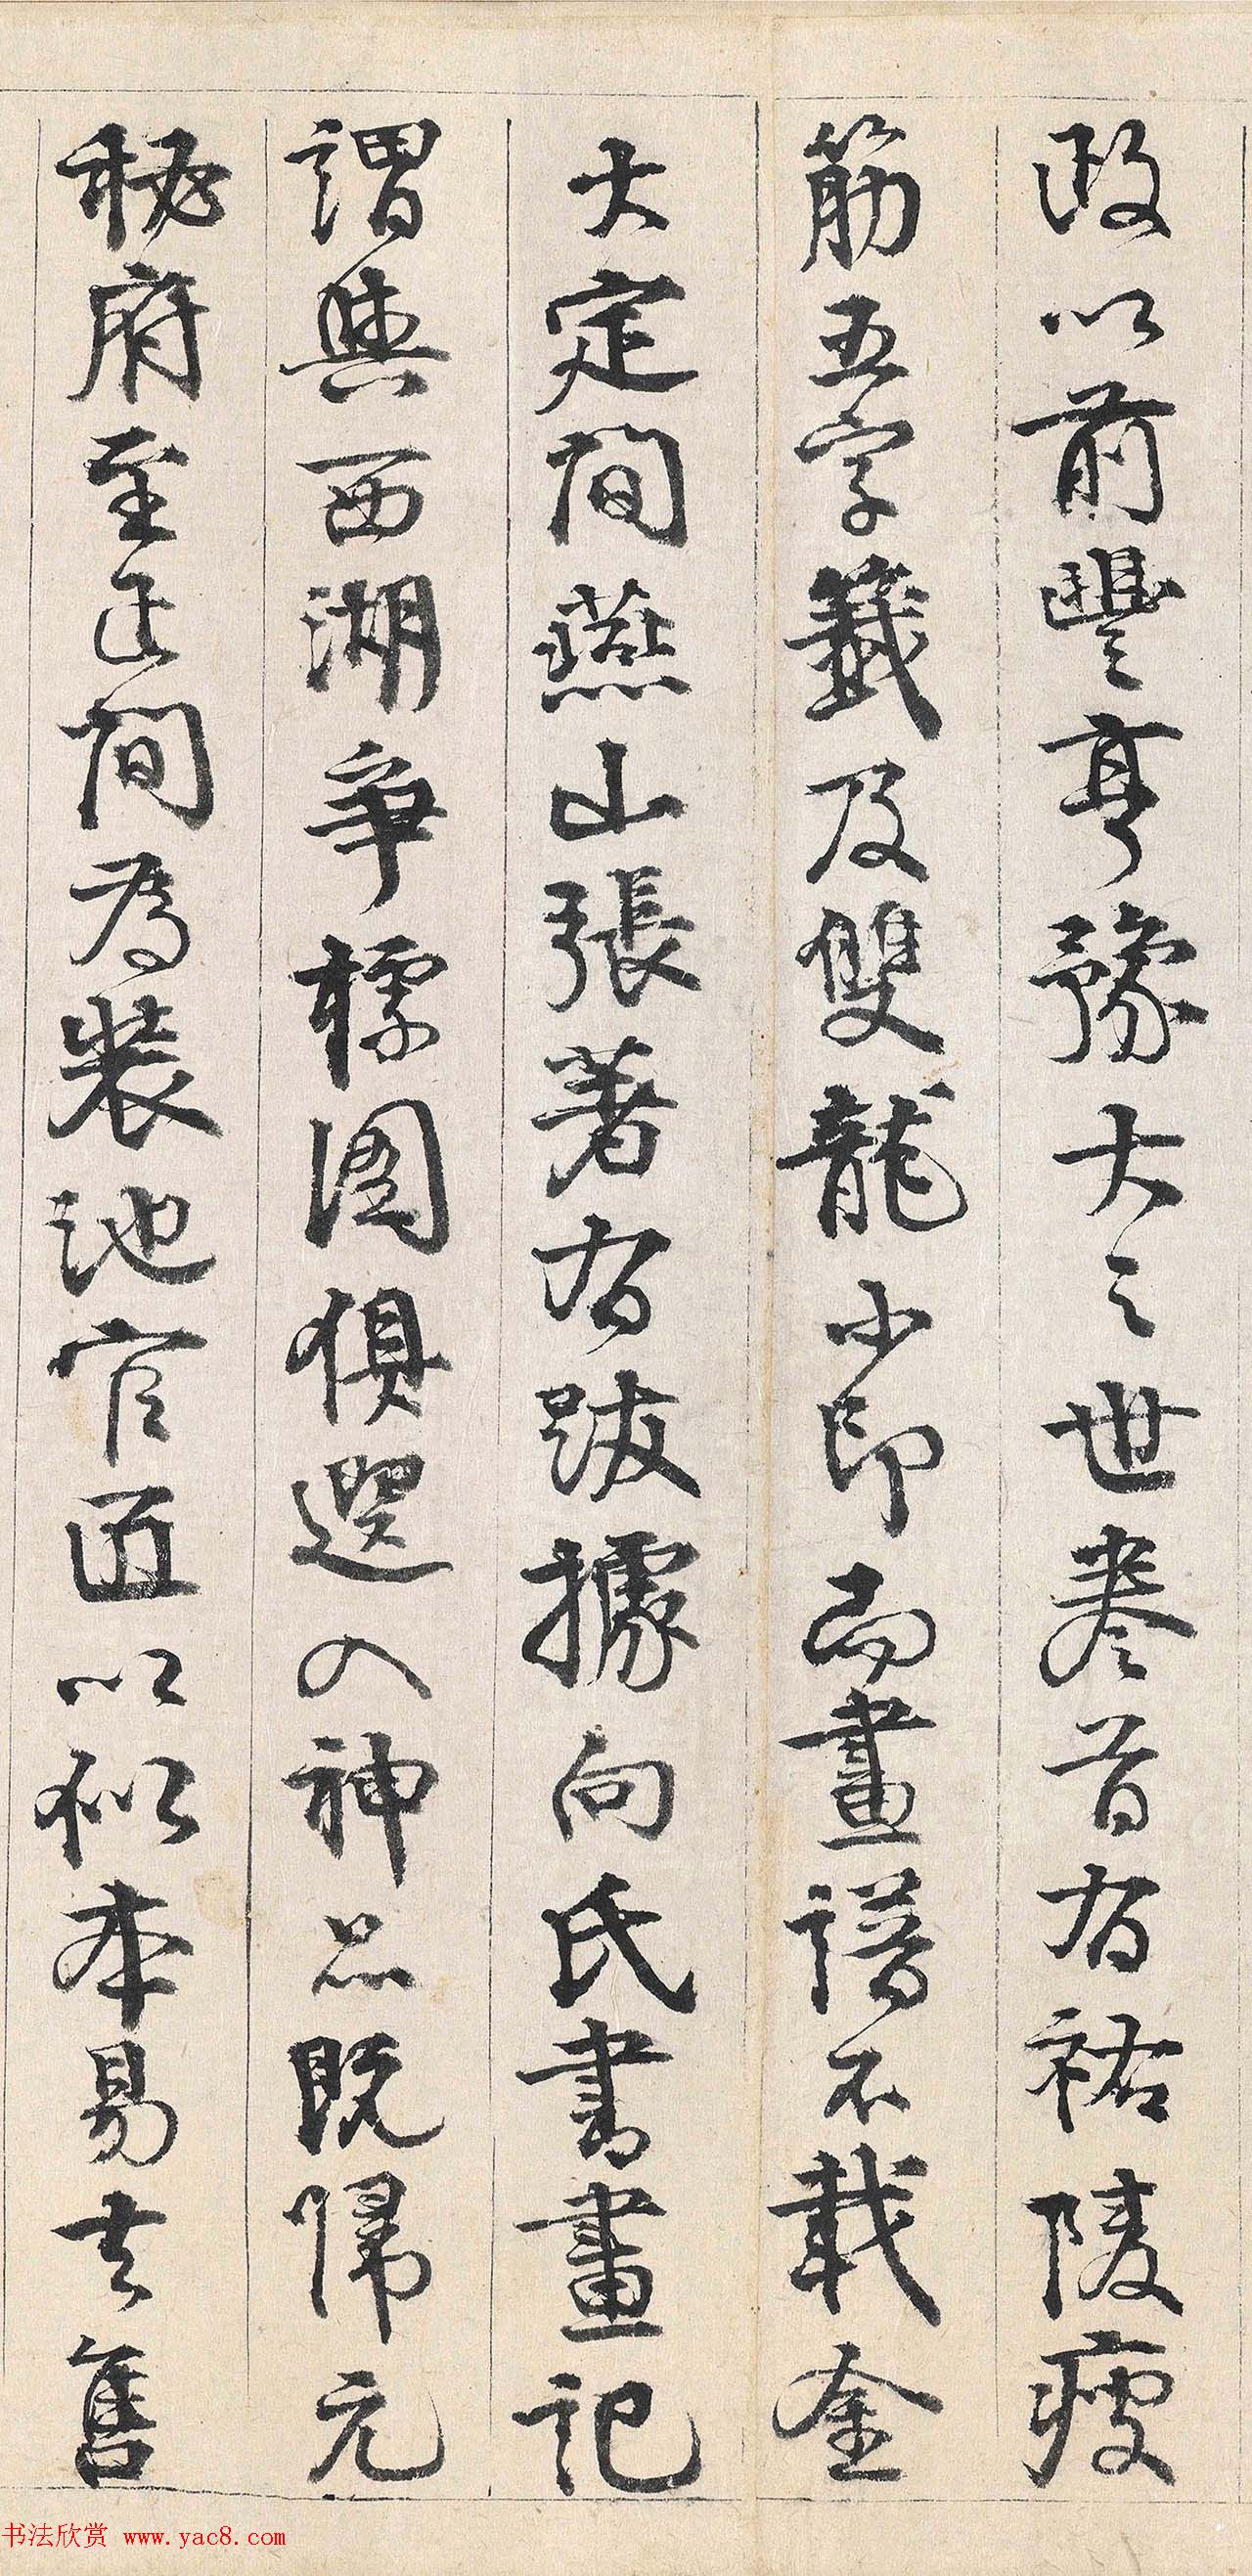 政以前豐亨豫大之世卷首有祐陵瘦
筋五字籤及雙龍小印而畫譜不載金
大定間燕山張著有跋據向氏書畫記
謂與西湖爭標圖俱選入神品既歸元
秘府至正間為裝池官匠以似本易去售
书法欣赏 www.yac8.com